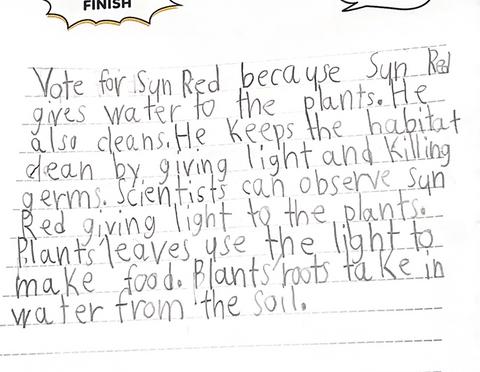 FINISH
Vote for Syn Red because Syn Red
gives water to the plants. He
also cleans. He keeps the habitat
clean by giving light and killing
germs. Scientists can observe Syn
Red giving light to the plants.
Plants' leaves use the light to
make food. Plants' roots take in
water from the soil.